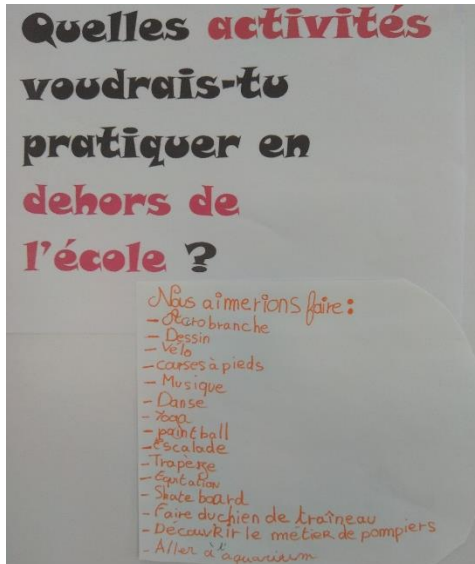 Quelles activités
voudrais-tu
pratiquer en
dehors de
l'école ?
Nous aimerions faire :
- Acrobranche
- Dessin
- Vélo
- courses à pieds
- Musique
- Danse
- Yoga
- paintball
- Escalade
- Trapèze
- Equitation
- Skate board
- Faire du chien de traîneau
- Découvrir le métier de pompiers
- Aller à l'aquarium